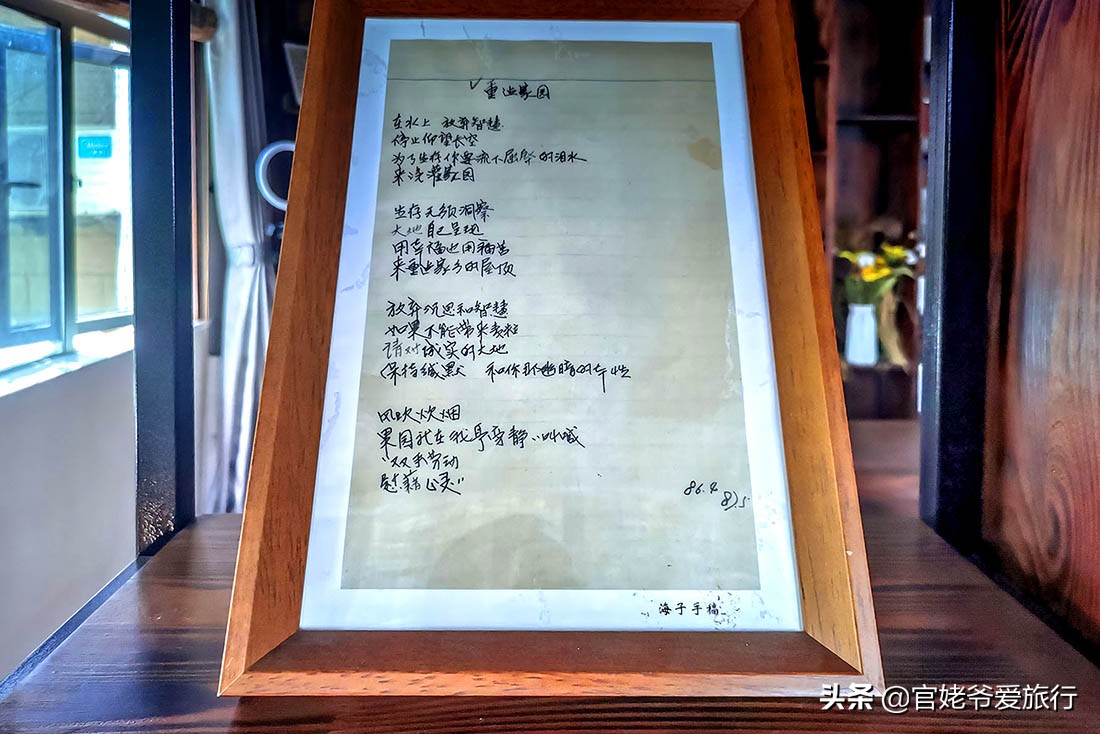 ✓重建家园
在水上 放弃智慧
停止仰望长空
为了生存你要流下屈辱的泪水
来浇灌家园
生存无须洞察
大地自己呈现
用幸福也用痛苦
来重建家乡的屋顶
放弃沉思和智慧
如果不能带来麦粒
请对诚实的大地
保持缄默 和你那幽暗的本性
风吹炊烟
果园就在我身旁静静叫喊
“双手劳动
慰藉心灵”
86.4
87.5
海子手稿
头条 @官姥爷爱旅行